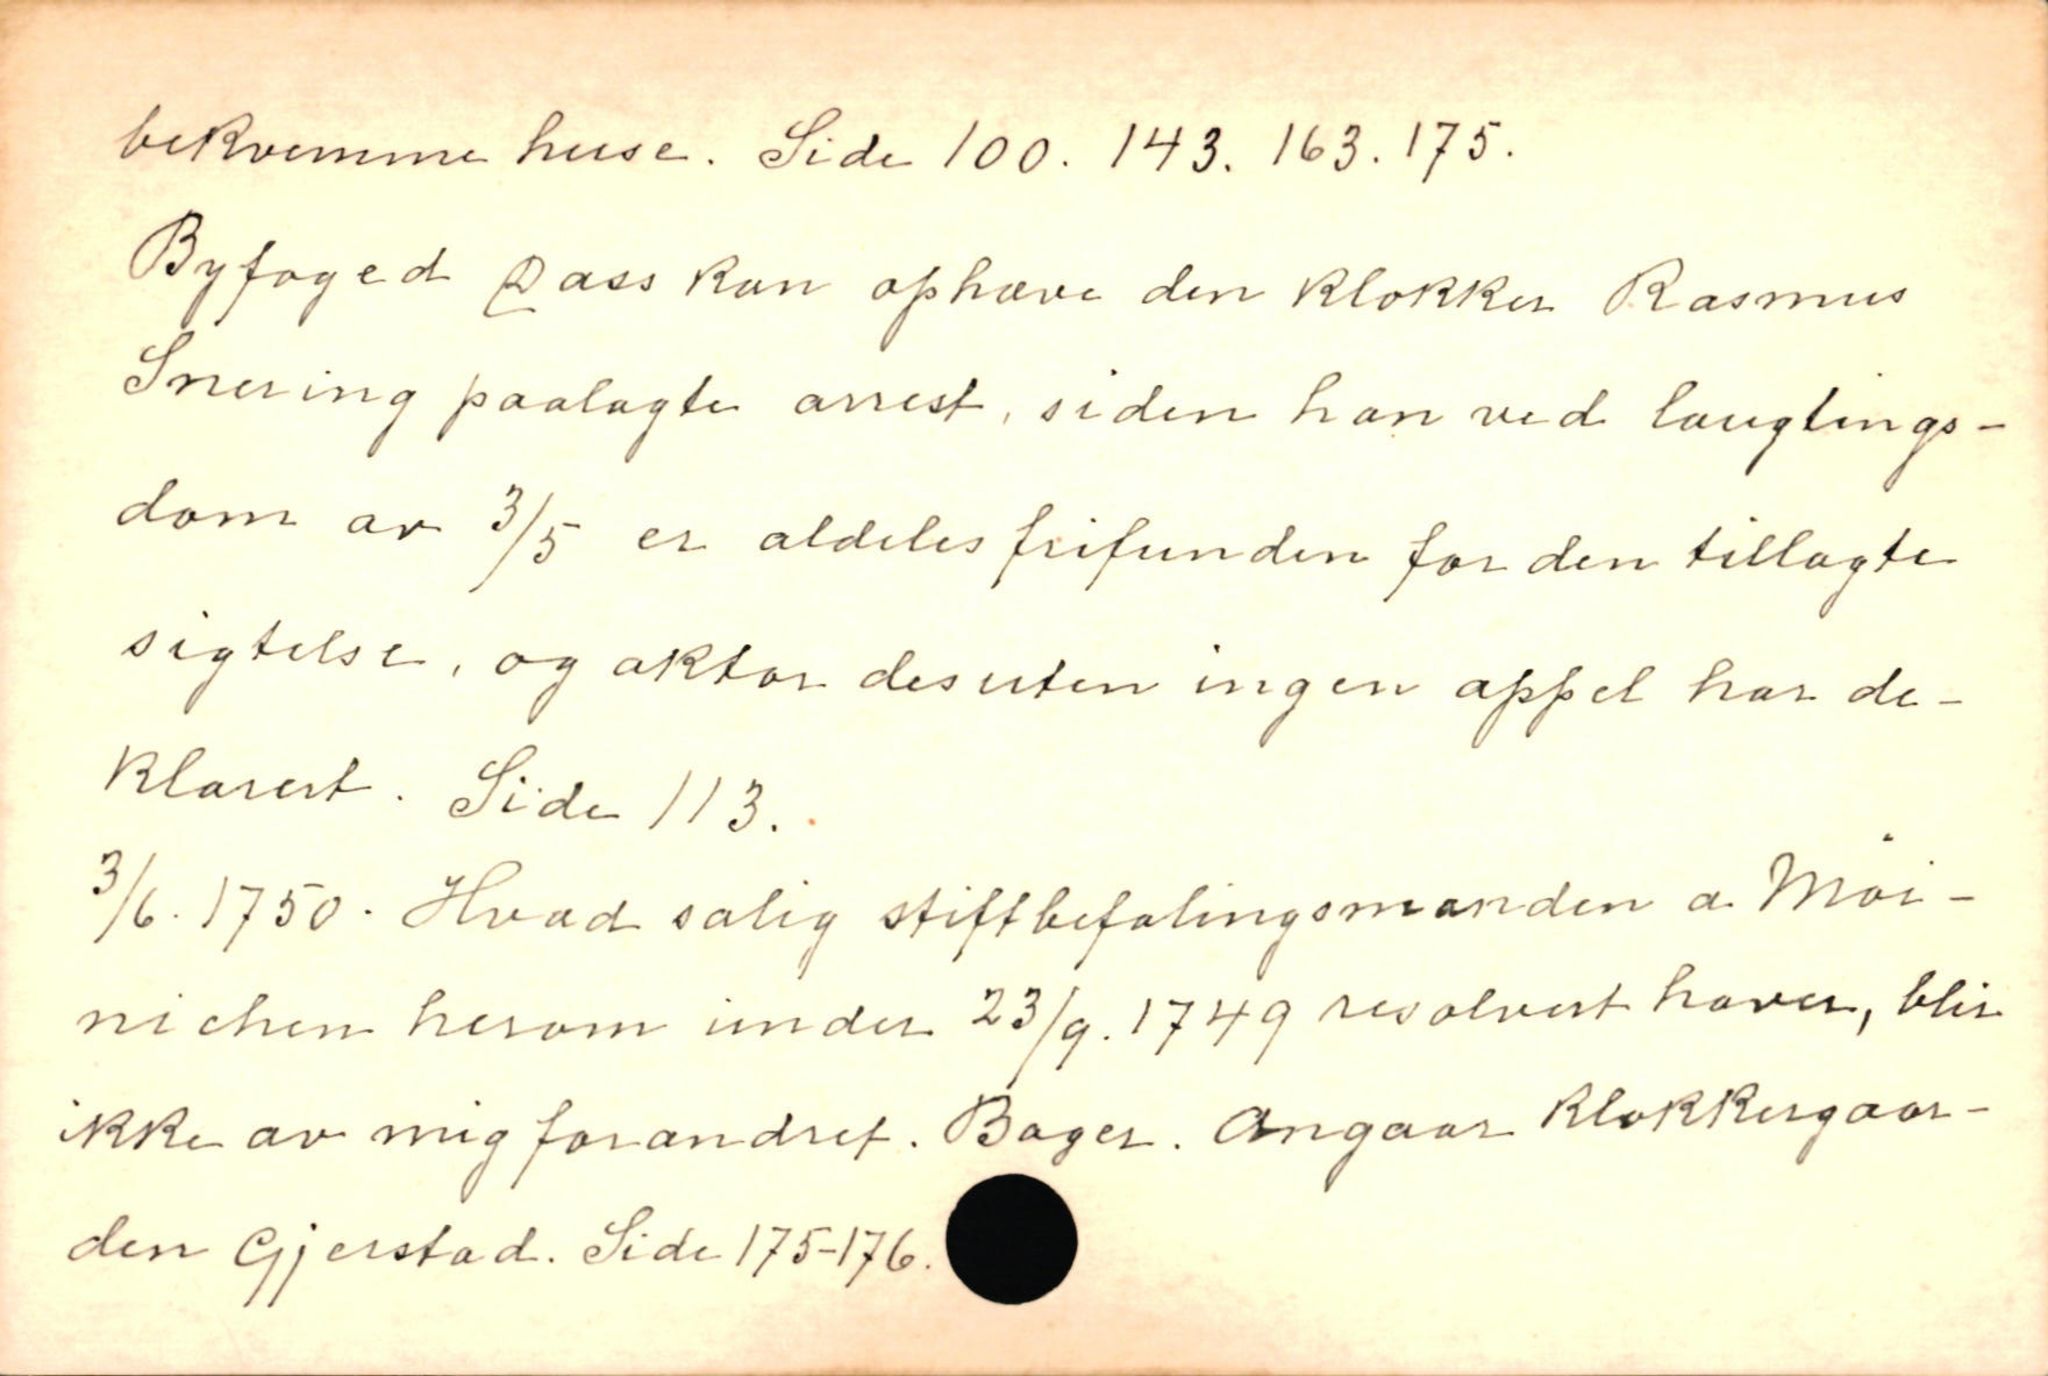 bekvemme huse. Side 100. 143. 163. 175.
Byfoged Dass kan ophæve den klokker Rasmus
Snering paalagte arrest, siden han ved laugtings-
dom av 3/5 er aldeles frifunden for den tillagte
sigtelse, og aktor desuten ingen appel har de-
klarert. Side 113.
3/6. 1750. Hvad salig stiftbefalingsmanden a Möi-
nichen herom under 23/9. 1749 resolvert haver, blir
ikke av mig forandret. Bager. Angaar klokkergaar-
den Gjerstad. Side 175-176.